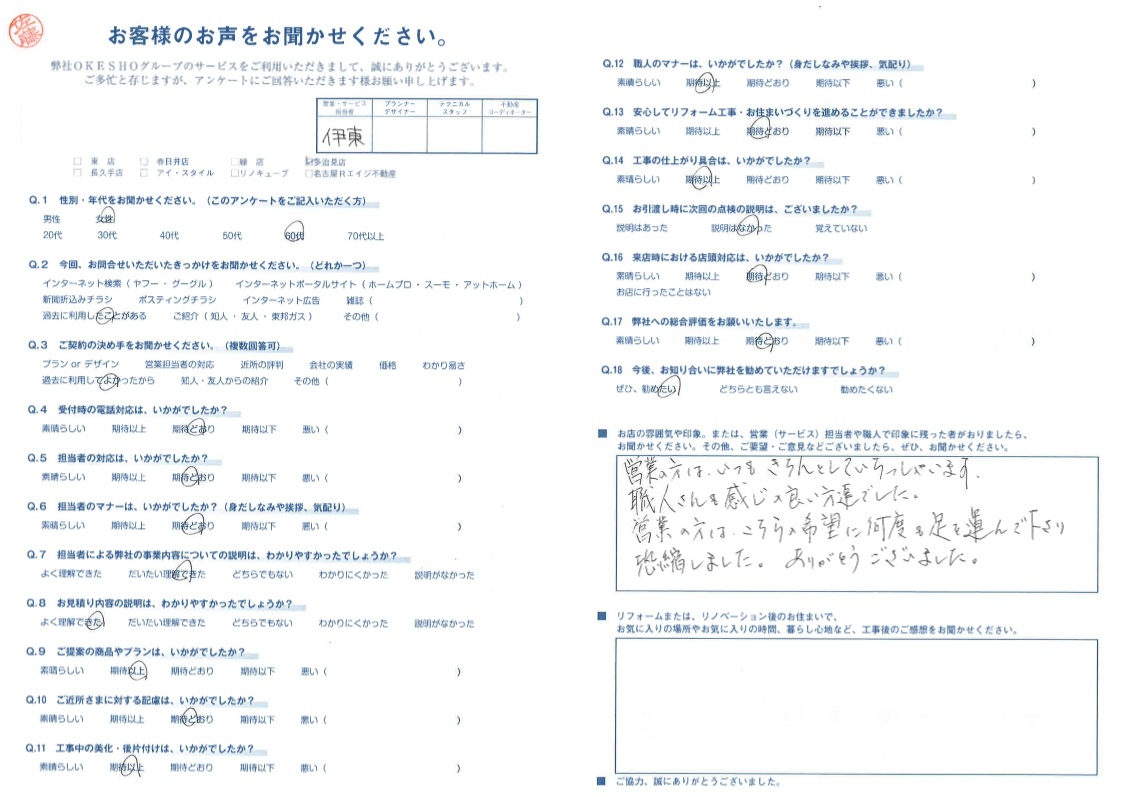 佐藤
お客様のお声をお聞かせください。
弊社OKESHOグループのサービスをご利用いただきまして、誠にありがとうございます。
ご多忙と存じますが、アンケートにご回答いただきます様お願い申し上げます。
営業・サービス担当者 プランナーデザイナー テクニカルスタッフ 不動産コーディネーター
伊東
□ 東 店 □ 春日井店 □緑 店 ☑多治見店
□ 長久手店 □ アイ・スタイル □リノキューブ □名古屋Rエイジ不動産
Q.1 性別・年代をお聞かせください。（このアンケートをご記入いただく方）
男性 女性
20代 30代 40代 50代 60代 70代以上
Q.2 今回、お問合せいただいたきっかけをお聞かせください。（どれか一つ）
インターネット検索（ ヤフー ・ グーグル ） インターネットポータルサイト（ ホームプロ ・ スーモ ・ アットホーム ）
新聞折込みチラシ ポスティングチラシ インターネット広告 雑誌（ ）
過去に利用したことがある ご紹介（ 知人 ・ 友人 ・ 東邦ガス ） その他（ ）
Q.3 ご契約の決め手をお聞かせください。（複数回答可）
プラン or デザイン 営業担当者の対応 近所の評判 会社の実績 価格 わかり易さ
過去に利用してよかったから 知人・友人からの紹介 その他（ ）
Q.4 受付時の電話対応は、いかがでしたか？
素晴らしい 期待以上 期待どおり 期待以下 悪い（ ）
Q.5 担当者の対応は、いかがでしたか？
素晴らしい 期待以上 期待どおり 期待以下 悪い（ ）
Q.6 担当者のマナーは、いかがでしたか？（身だしなみや挨拶、気配り）
素晴らしい 期待以上 期待どおり 期待以下 悪い（ ）
Q.7 担当者による弊社の事業内容についての説明は、わかりやすかったでしょうか？
よく理解できた だいたい理解できた どちらでもない わかりにくかった 説明がなかった
Q.8 お見積り内容の説明は、わかりやすかったでしょうか？
よく理解できた だいたい理解できた どちらでもない わかりにくかった 説明がなかった
Q.9 ご提案の商品やプランは、いかがでしたか？
素晴らしい 期待以上 期待どおり 期待以下 悪い（ ）
Q.10 ご近所さまに対する配慮は、いかがでしたか？
素晴らしい 期待以上 期待どおり 期待以下 悪い（ ）
Q.11 工事中の美化・後片付けは、いかがでしたか？
素晴らしい 期待以上 期待どおり 期待以下 悪い（ ）
Q.12 職人のマナーは、いかがでしたか？（身だしなみや挨拶、気配り）
素晴らしい 期待以上 期待どおり 期待以下 悪い（ ）
Q.13 安心してリフォーム工事・お住まいづくりを進めることができましたか？
素晴らしい 期待以上 期待どおり 期待以下 悪い（ ）
Q.14 工事の仕上がり具合は、いかがでしたか？
素晴らしい 期待以上 期待どおり 期待以下 悪い（ ）
Q.15 お引渡し時に次回の点検の説明は、ございましたか？
説明はあった 説明はなかった 覚えていない
Q.16 来店時における店頭対応は、いかがでしたか？
素晴らしい 期待以上 期待どおり 期待以下 悪い（ ）
お店に行ったことはない
Q.17 弊社への総合評価をお願いいたします。
素晴らしい 期待以上 期待どおり 期待以下 悪い（ ）
Q.18 今後、お知り合いに弊社を勧めていただけますでしょうか？
ぜひ、勧めたい どちらとも言えない 勧めたくない
■ お店の雰囲気や印象。または、営業（サービス）担当者や職人で印象に残った者がおりましたら、
お聞かせください。その他、ご要望・ご意見などございましたら、ぜひ、お聞かせください。
営業の方は、いつも きちんとしていらっしゃいます。
職人さんも感じの良い方達でした。
営業の方は、こちらの希望に何度も足を運んで下さり
恐縮しました。 ありがとうございました。
■ リフォームまたは、リノベーション後のお住まいで、
お気に入りの場所やお気に入りの時間、暮らし心地など、工事後のご感想をお聞かせください。
■ ご協力、誠にありがとうございました。